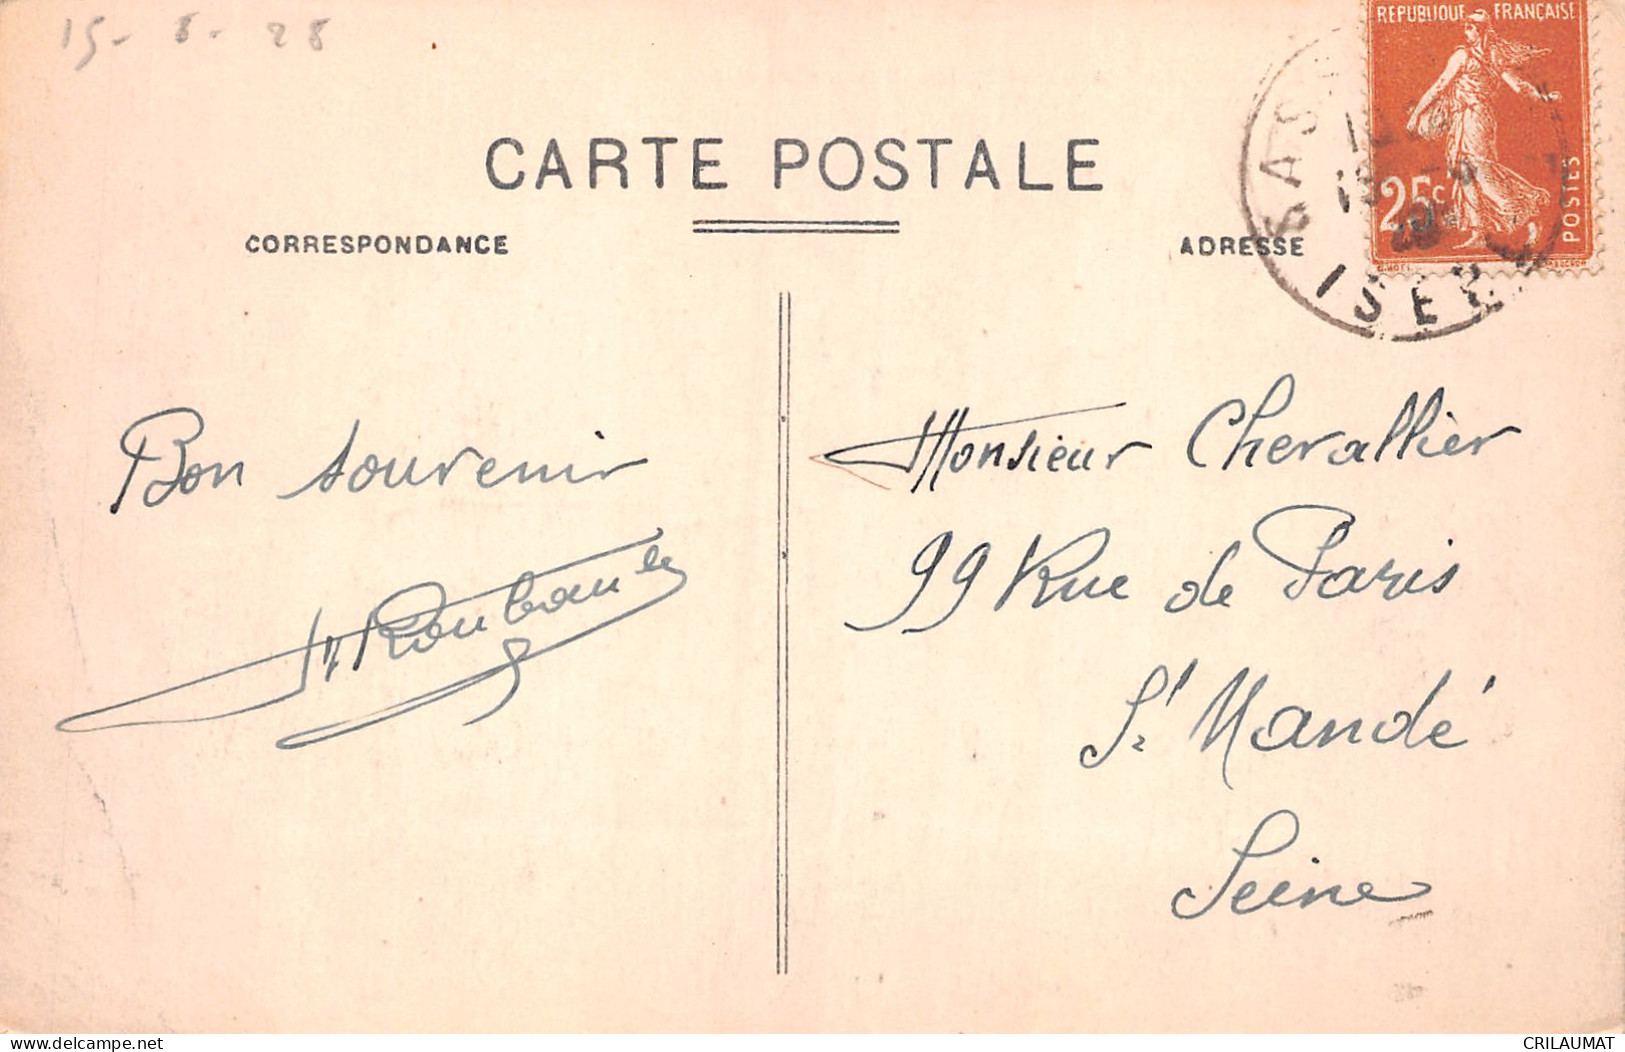 15-8-28
RÉPUBLIQUE FRANÇAISE
25c
POSTES
ISÈRE
CARTE POSTALE
CORRESPONDANCE
ADRESSE
Bon souvenir
Monsieur Chevallier
99 Rue de Paris
St Mandé
Seine
www.delcampe.net
CRILAUMAT